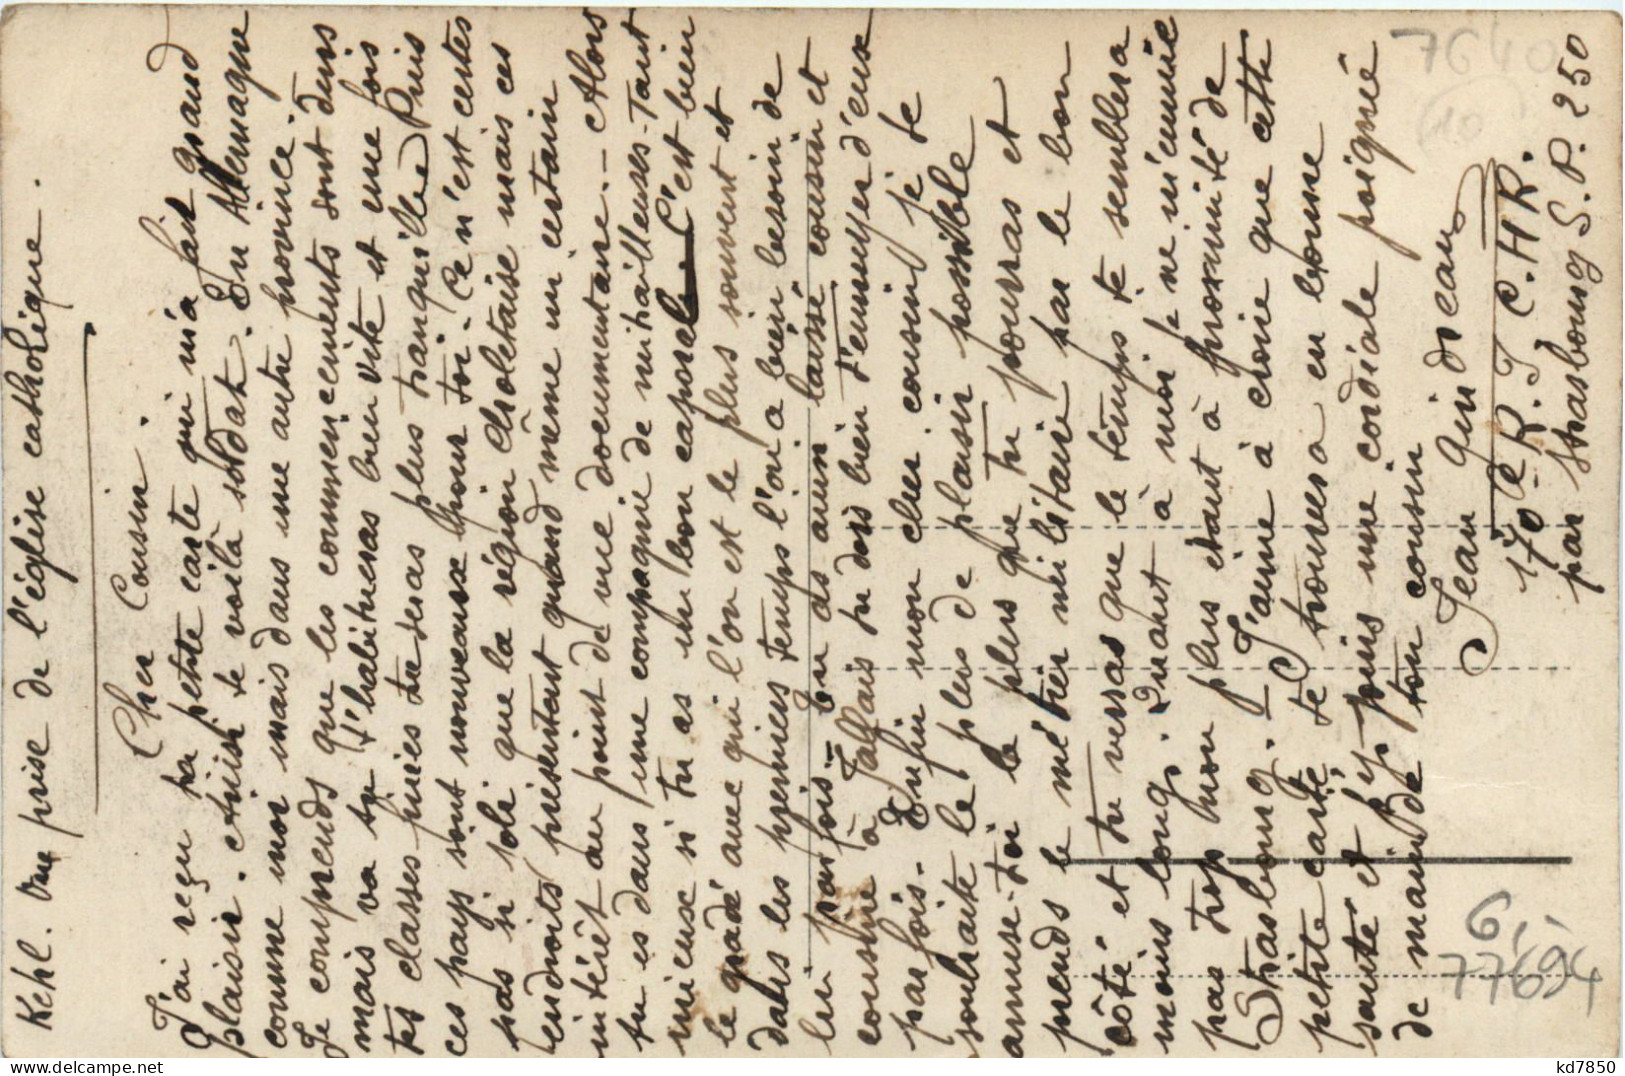 Kehl. Vue prise de l'église catholique.
Cher Cousin.
J'ai reçu ta petite carte qui m'a fait grand
plaisir. Ainsi te voilà soldat. En Allemagne
comme moi mais dans une autre province.
Je comprends que les commencements sont durs
mais va tu t'habitueras bien vite et une fois
tes classes finies tu seras plus tranquille Puis
ces pays sont nouveaux pour toi. Ce n'est certes
pas si joli que la région Choletaise mais ces
endroits présentent quand même un certain
intérêt au point de vue documentaire. - Alors
tu es dans une compagnie de mitrailleuses. Tant
mieux si tu as un bon caporal C'est bien
le gradé avec qui l'on est le plus souvent et
dans les premiers temps l'on a bien besoin de
lui parfois. - Tu as aussi laissé cousin et
cousine à tu dois bien t'ennuyer d'eux
parfois - Enfin mon cher cousin je te
souhaite le plus de plaisir possible
amuse-toi le plus que tu pourras et
prends le métier militaire par le bon
côté et tu verras que le temps te semblera
moins long. Quant à moi je ne m'ennuie
pas trop non plus étant à proximité de
Strasbourg. - J'aime à croire que cette
petite carte te trouvera en bonne
santé et j'y joins une cordiale poignée
de main de ton cousin
Jean
170e R. I C.H.R.
par Strasbourg S.P. 250
7640
(10)
6,-
77694
kd7850